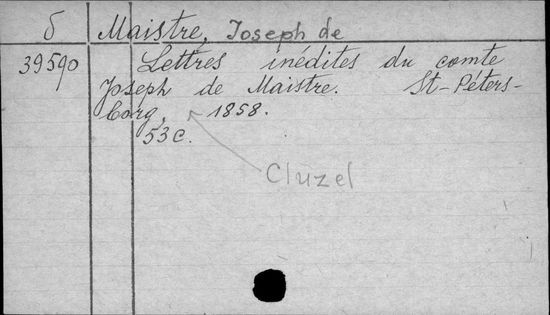 δ Maistre, Joseph de
39590 Lettres inédites du comte
Joseph de Maistre. St-Peters-
borg, 1858.
53 c.
Cluzel